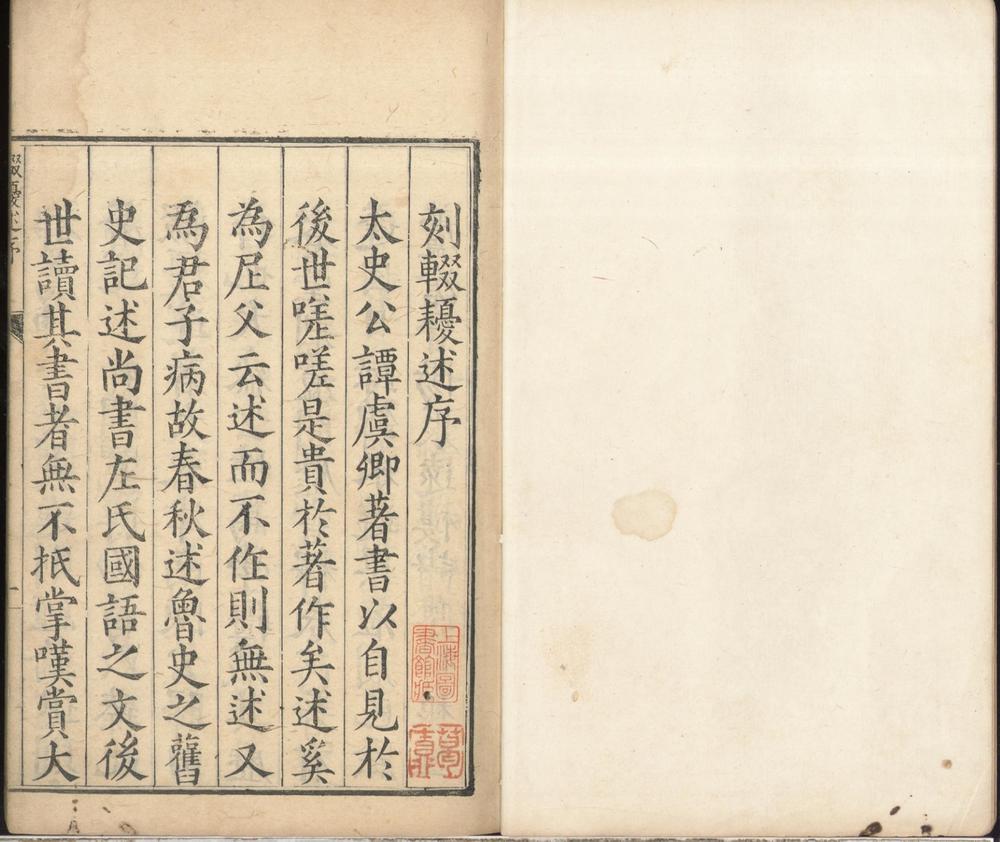 刻輟耰述序
太史公譚虞卿著書以自見於
後世嗟嗟是貴於著作矣述奚
為尼父云述而不作則無述又
為君子病故春秋述魯史之舊
史記述尚書左氏國語之文後
世讀其書者無不抵掌嘆賞大
輟耰述序
一
上海圖書館藏